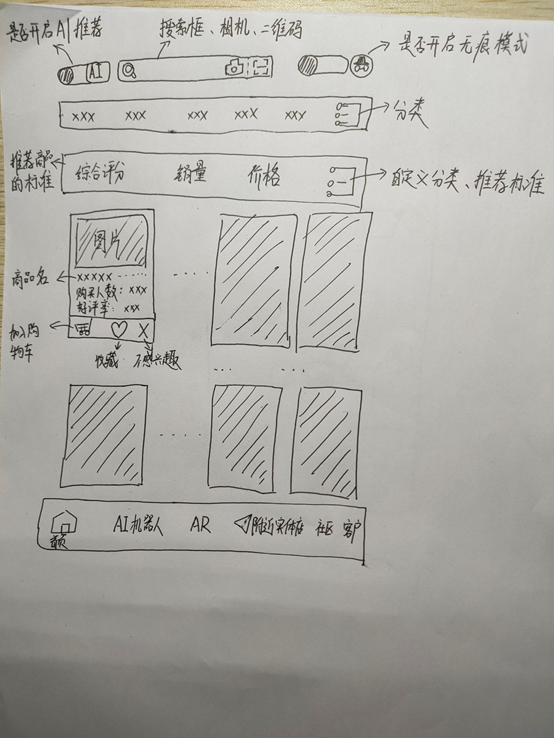 是否开启AI推荐
搜索框、相机、二维码
是否开启无痕模式
AI
xxx xxx xxx xxx xxx
分类
推荐商品的标准
综合评分 销量 价格
自定义分类、推荐标准
图片
商品名
xxxxx ......
购买人数: xxx
好评率: xxx
加入购物车
收藏 不感兴趣
首页 AI机器人 AR 附近实体店 社区 客户